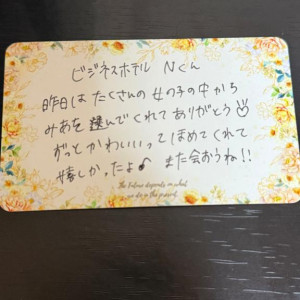 ビジネスホテル Nくん
昨日はたくさんの女の子の中から
みあを選んでくれてありがとう
ずっとかわいいってほめてくれて
嬉しかったよ♪ また会おうね!!
The future depends on what
we do in the present.